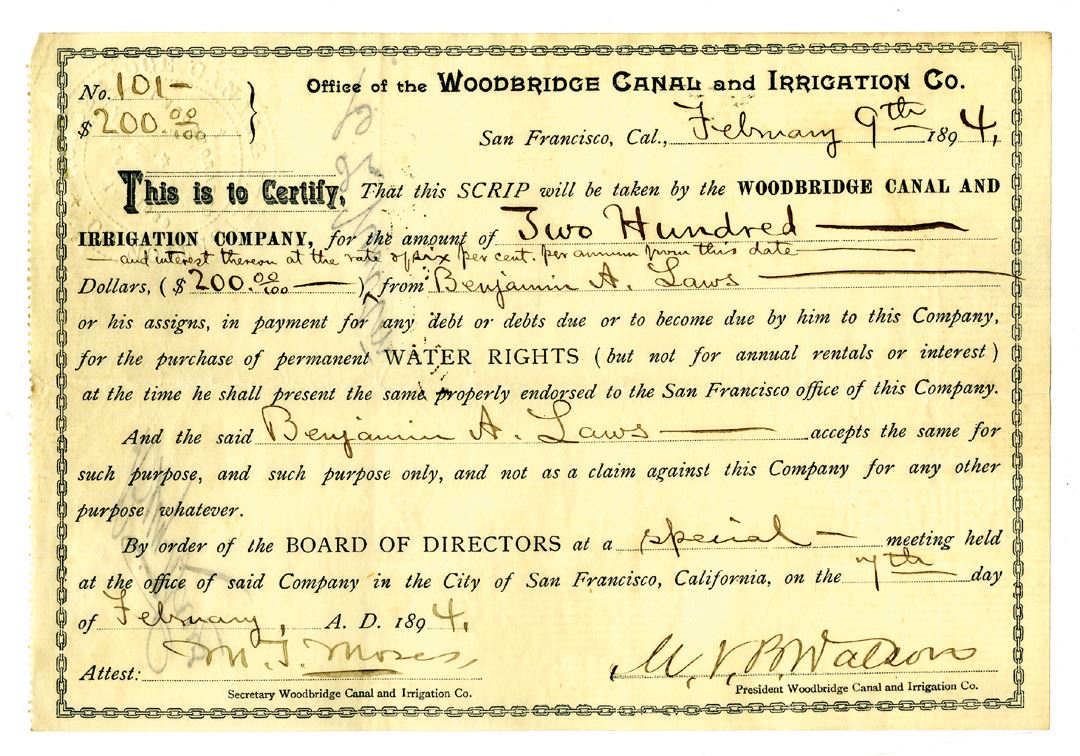 No. 101-
$200.00/100
Office of the WOODBRIDGE CANAL and IRRIGATION CO.
San Francisco, Cal., February 9th 1894.
This is to Certify, That this SCRIP will be taken by the WOODBRIDGE CANAL AND
IRRIGATION COMPANY, for the amount of Two Hundred —
— and interest thereon at the rate of six per cent. per annum from this date —
Dollars, ($200.00/100 —)^ from Benjamin A. Laws —
or his assigns, in payment for any debt or debts due or to become due by him to this Company,
for the purchase of permanent WATER RIGHTS (but not for annual rentals or interest)
at the time he shall present the same properly endorsed to the San Francisco office of this Company.
And the said Benjamin A. Laws — accepts the same for
such purpose, and such purpose only, and not as a claim against this Company for any other
purpose whatever.
By order of the BOARD OF DIRECTORS at a special — meeting held
at the office of said Company in the City of San Francisco, California, on the 7th day
of February, A. D. 1894.
Attest: M. T. Moses, M. V. B. Watson
Secretary Woodbridge Canal and Irrigation Co. President Woodbridge Canal and Irrigation Co.